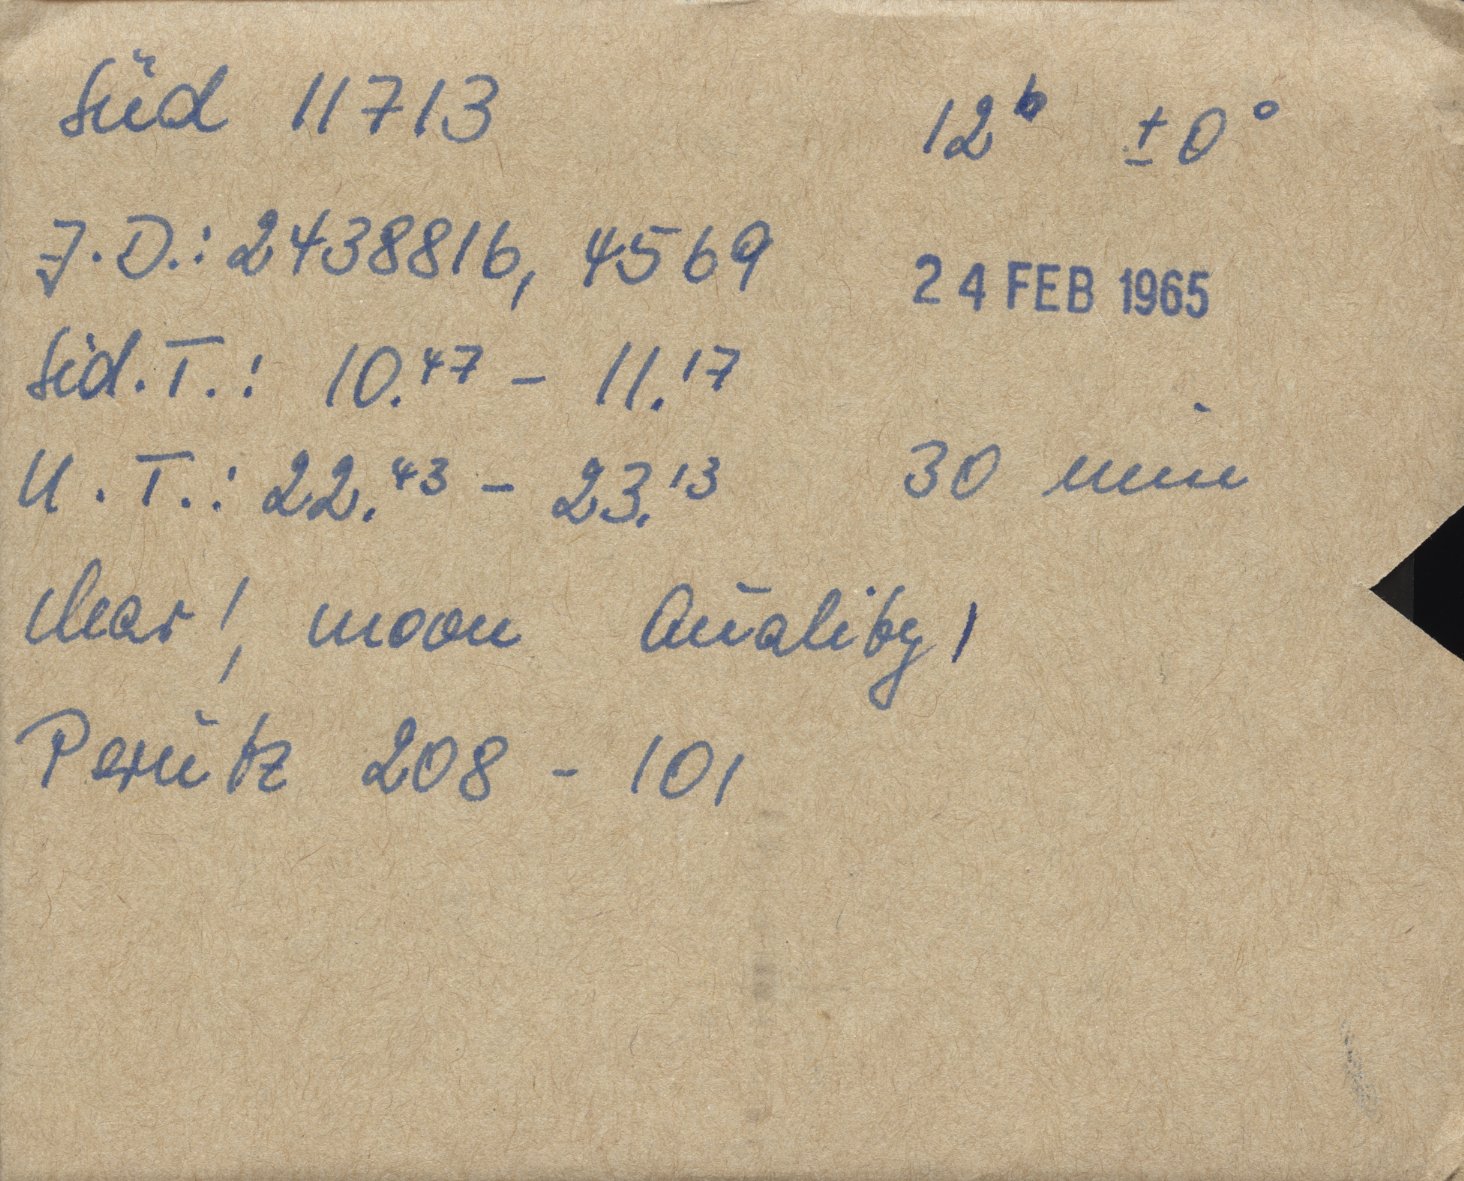 Süd 11713 12ʰ ±0°
J.D.: 2438816, 4569 24 FEB 1965
Sid. T.: 10.⁴⁷ – 11.¹⁷
U. T.: 22.⁴³ – 23.¹³ 30 min
clear!, moon Quality 1
Perutz 208 – 101